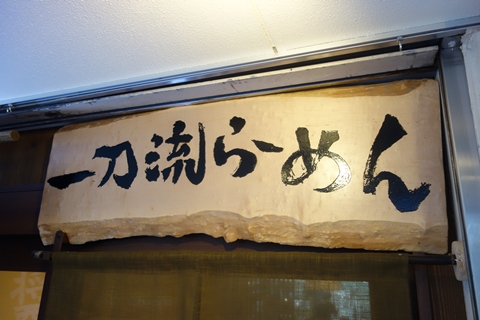 一刀流らーめん